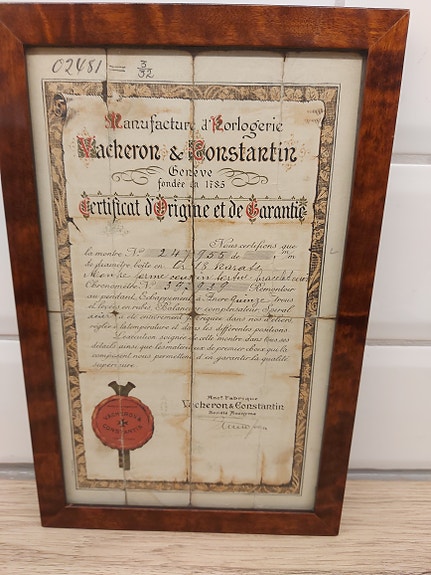 02481 3/32
Manufacture d'Horlogerie
Vacheron & Constantin
Genève
fondée en 1785
Certificat d'Origine et de Garantie
Nous certifions que
la montre, No 247955 de m/m
de diamètre, boîte en Or 18 Karats
forme coussin
Chronomètre No 392929 Remontoir
au pendant, Echappement à Ancre Quinze trous
et levées en rubis, Balancier compensateur, Spiral
a été entièrement fabriquée dans nos ateliers
réglée à la température et dans les différentes positions.
L'exécution soignée de cette montre dans tous ses
détails ainsi que les matériaux de premier choix qui la
composent nous permettent d'en garantir la qualité
supérieure.
Ancne Fabrique
Vacheron & Constantin
Société Anonyme
VACHERON &
CONSTANTIN